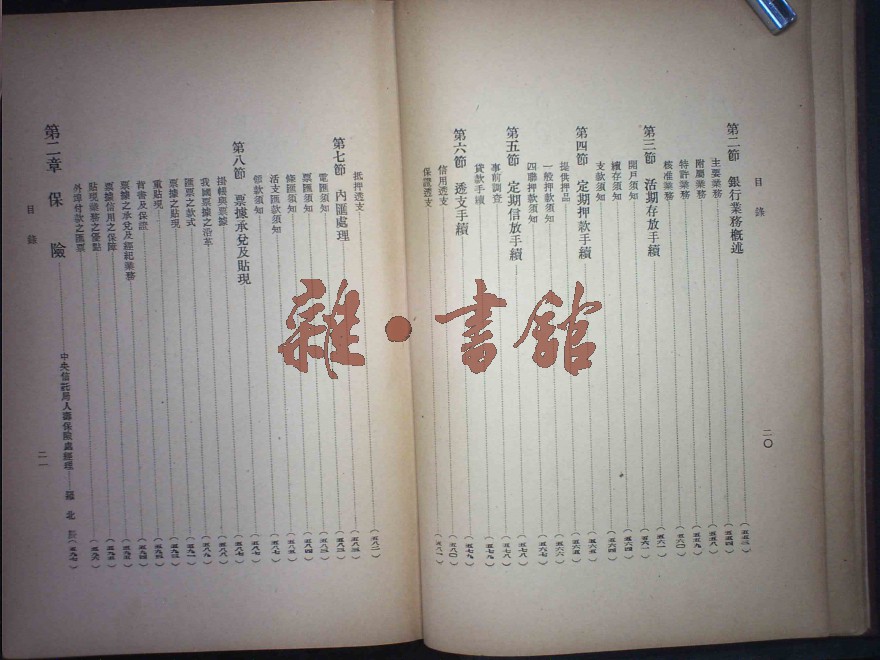 目錄
第二節 銀行業務概述 (五五三)
主要業務 (五五四)
附屬業務 (五五八)
特許業務 (五五九)
核准業務 (五六〇)
第三節 活期存放手續 (五六一)
開戶須知 (五六一)
續存須知 (五六四)
支款須知 (五六四)
第四節 定期押款手續 (五六五)
提供押品 (五六五)
一般押款須知 (五六六)
四聯押款須知 (五六七)
第五節 定期信放手續 (五七八)
事前調查 (五七八)
貸款手續 (五七九)
第六節 透支手續 (五七九)
信用透支 (五八〇)
保證透支 (五八一)
二〇
抵押透支 (五八二)
第七節 內匯處理 (五八三)
電匯須知 (五八三)
票匯須知 (五八四)
條匯須知 (五八五)
活支匯款須知 (五八七)
節款須知 (五八七)
第八節 票據承兌及貼現 (五八七)
掛帳與票據 (五八八)
我國票據之沿革 (五八九)
匯票之款式 (五九一)
票據之貼現 (五九三)
重貼現 (五九四)
背書及保證 (五九四)
票據之承兌及經紀業務 (五九五)
票據信用之保險 (五九五)
貼現業務之優點 (五九六)
外埠付款之匯票 (五九七)
第二章 保險 中央信託局人壽保險處經理 羅北
目錄
二一
雜·書館